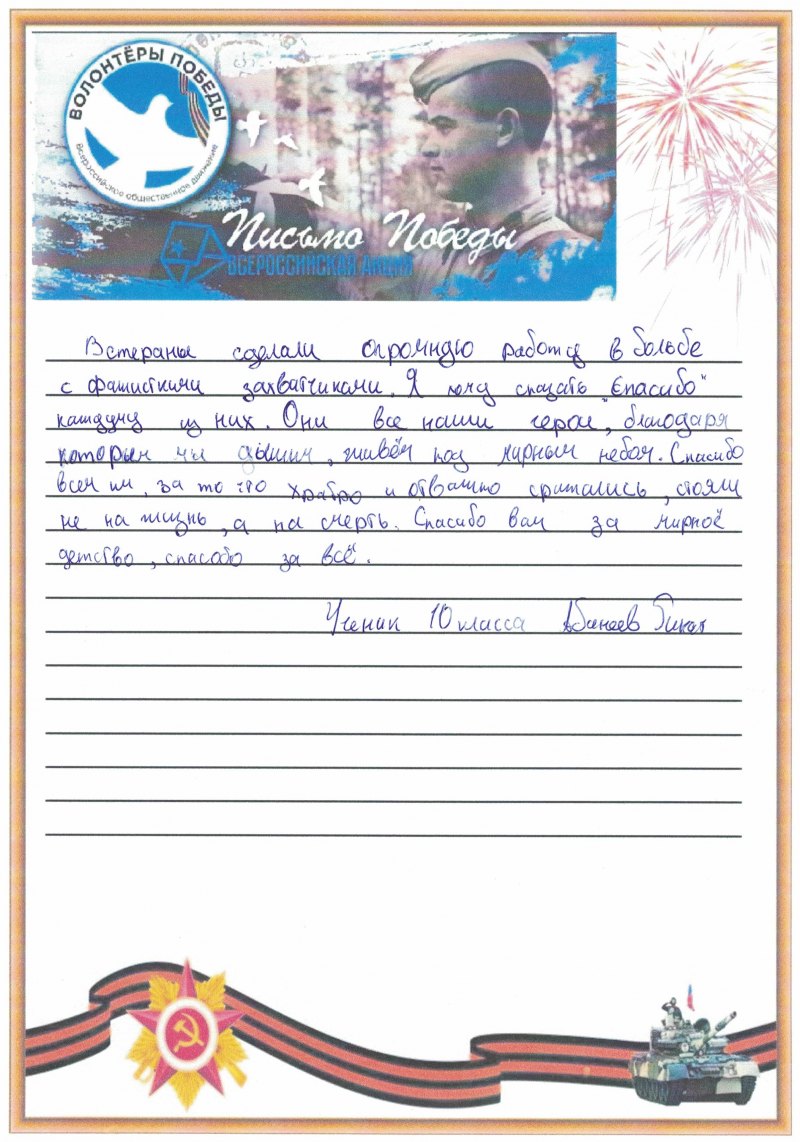 ВОЛОНТЁРЫ ПОБЕДЫ
Всероссийское общественное движение
Письмо Победы
ВСЕРОССИЙСКАЯ АКЦИЯ
Ветераны сделали огромную работу в борьбе
с фашисткими захватчиками. Я хочу сказать "Спасибо"
каждому из них. Они все наши герои, благодаря
которым мы дышим, живём под мирным небом. Спасибо
всем им, за то что храбро и отважно сражались, стояли
не на жизнь, а на смерть. Спасибо вам за мирное
детство, спасобо за всё.
Ученик 10 класса